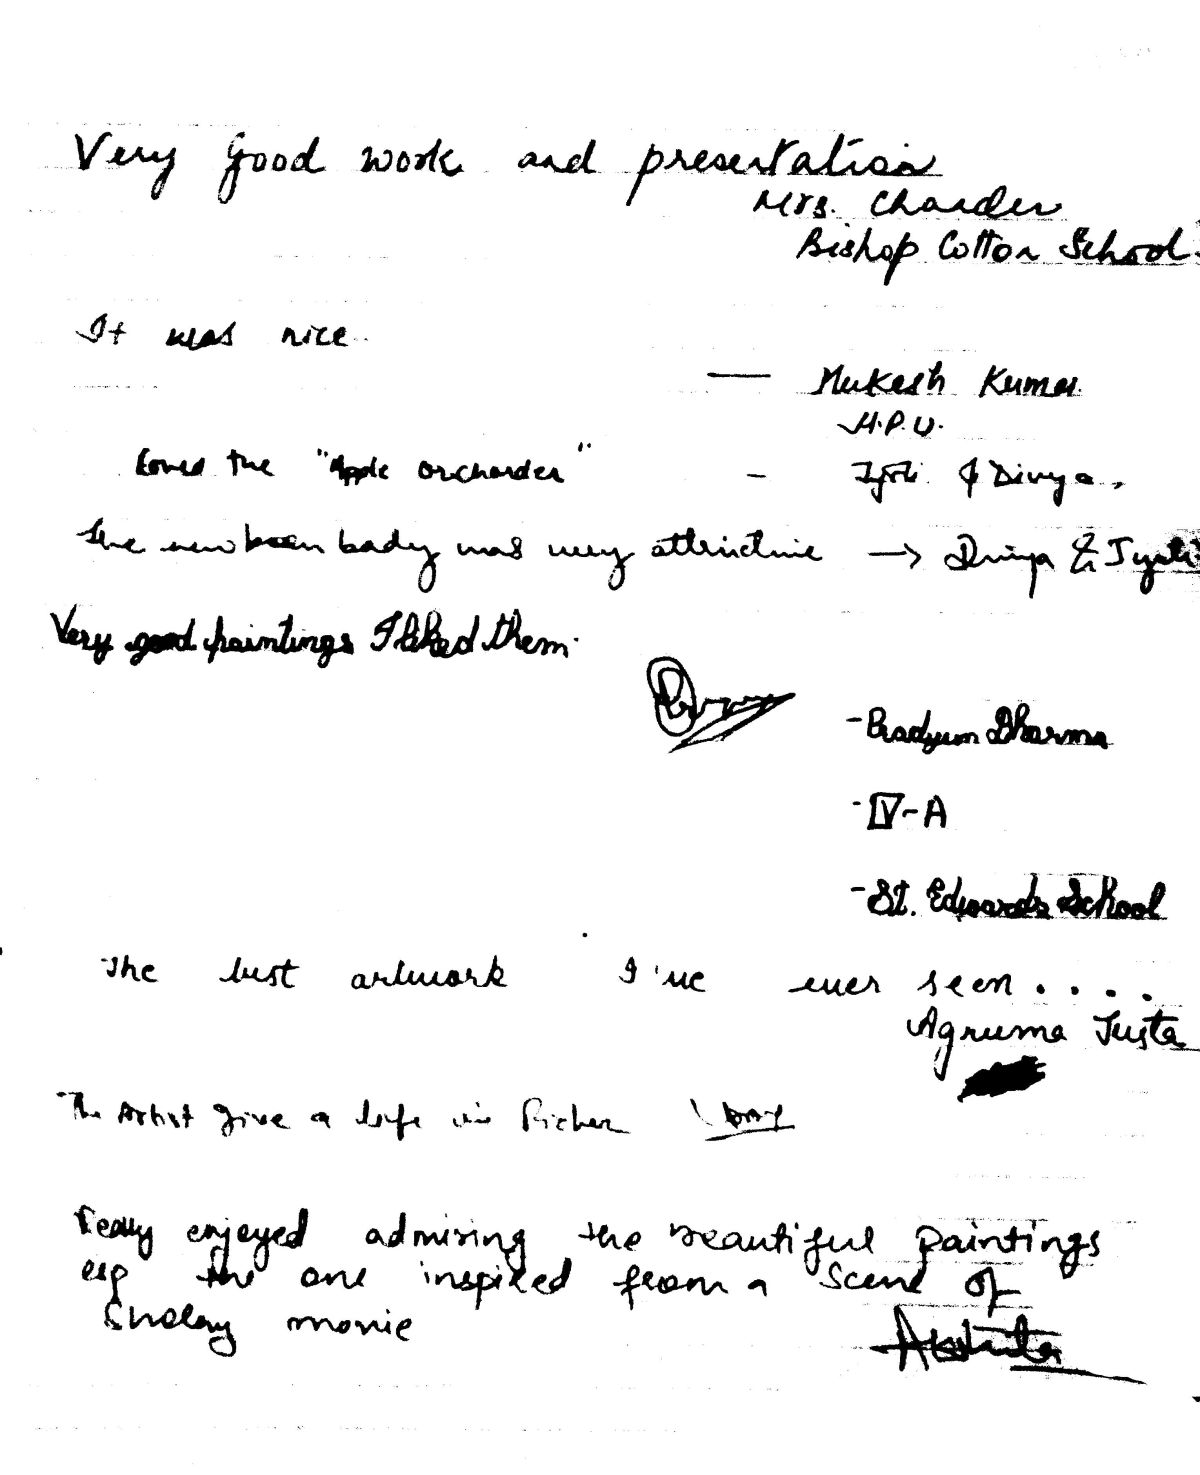 Very good work and presentation
Mrs. Chander
Bishop Cotton School.
It was nice.
— Mukesh Kumar
H.P.U.
Loved the "Apple orcharder" - Jyoti & Divya.
The new born baby was very attractive → Divya & Jyoti
Very good paintings I liked them.
- Pradyum Sharma
- IV-A
- St. Edwards School
The best artwork I've ever seen....
Agruma Justa
The Artist give a life in Picher
Really enjoyed admiring the beautiful paintings
esp the one inspired from a scene of
Sholay movie
Akshita